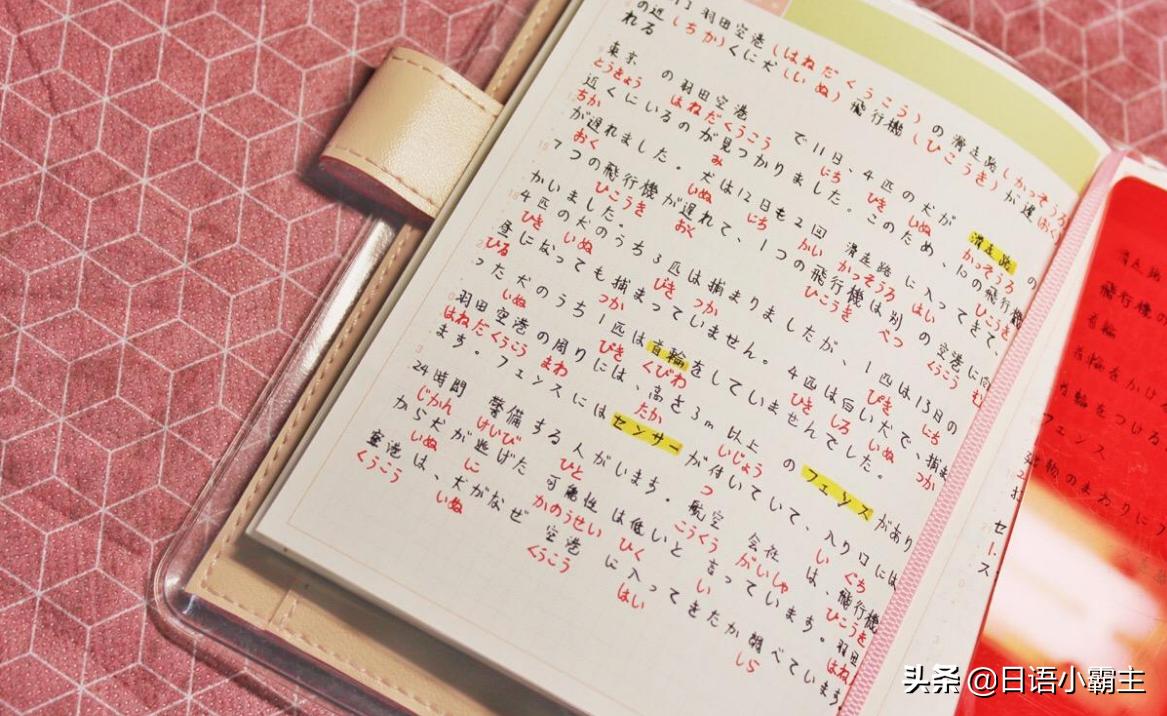 羽田空港(はねだくうこう)の滑走路(かっそうろ
の近(ちか)くに犬(いぬ) 飛行機(ひこうき)が遅(おく
れる
東京の羽田空港で11日、4匹の犬が滑走路の
とうきょう はねだくうこう にち ひき いぬ かっそうろ
近くにいるのが見つかりました。このため、10の飛行機
ちか み ひこうき
が遅れました。犬は12日も2回滑走路に入ってきて、
おく いぬ にち かい かっそうろ はい
7つの飛行機が遅れて、1つの飛行機は別の空港に向
ひこうき おく ひこうき べつ くうこう む
かいました。
4匹の犬のうち3匹は捕まりましたが、1匹は13日の
ひき いぬ びき つか ぴき にち
昼になっても捕まっていません。4匹は白い犬で、捕ま
ひる つか ひき しろ いぬ つか
った犬のうち1匹は首輪をしていませんでした。
いぬ ぴき くびわ
羽田空港の周りには、高さ3m以上のフェンスがあり
はねだくうこう まわ たか いじょう
ます。フェンスにはセンサーが付いていて、入り口には
つ い ぐち
24時間警備する人がいます。航空会社は、飛行機
じかん けいび ひと こうくう がいしゃ ひこうき
から犬が逃げた可能性は低いと言っています。羽田
いぬ に かのうせい ひく い はね
空港は、犬がなぜ空港に入ってきたか調べています
くうこう いぬ くうこう はい しら
滑走路
飛行機の
首輪
首輪をかけ
首輪をつける
フェンス
建物のまわりに
セ
ース
头条 @日语小霸主